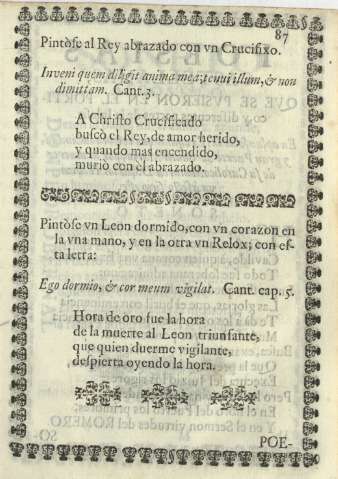 87
Pintòse al Rey abrazado con vn Crucifixo.
Inveni quem diligit anima mea; tenui illum, & non
dimittam. Cant. 3.
A Christo Crucificado
buscò el Rey, de amor herido,
y quando mas encendido,
muriò con èl abrazado.
Pintòse vn Leon dormido, con vn corazon en
la vna mano, y en la otra vn Relox; con es-
ta letra:
Ego dormio, & cor meum vigilat. Cant. cap. 5.
Hora de oro fue la hora
de la muerte al Leon triunfante,
que quien duerme vigilante,
despierta oyendo la hora.
POE-